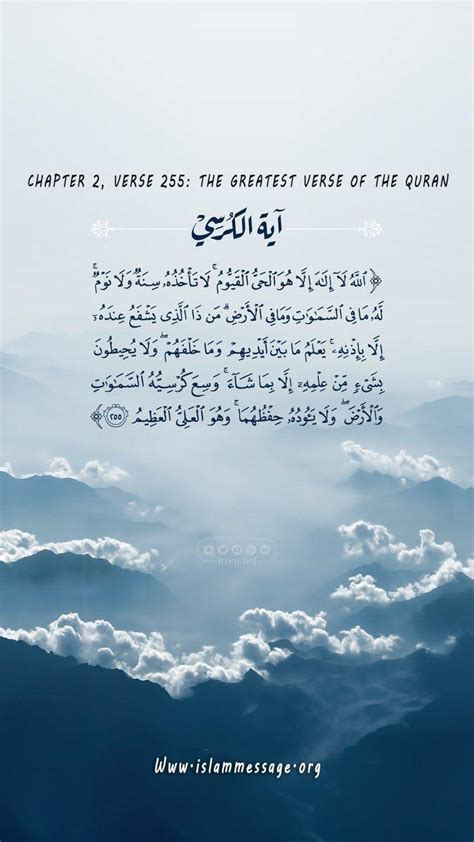 CHAPTER 2, VERSE 255: THE GREATEST VERSE OF THE QURAN
آية الكرسي
﴿ ٱللَّهُ لَآ إِلَٰهَ إِلَّا هُوَ ٱلْحَىُّ ٱلْقَيُّومُ ۚ لَا تَأْخُذُهُۥ سِنَةٌ وَلَا نَوْمٌ ۚ
لَّهُۥ مَا فِى ٱلسَّمَٰوَٰتِ وَمَا فِى ٱلْأَرْضِ ۗ مَن ذَا ٱلَّذِى يَشْفَعُ عِندَهُۥٓ
إِلَّا بِإِذْنِهِۦ ۚ يَعْلَمُ مَا بَيْنَ أَيْدِيهِمْ وَمَا خَلْفَهُمْ ۖ وَلَا يُحِيطُونَ
بِشَىْءٍ مِّنْ عِلْمِهِۦٓ إِلَّا بِمَا شَآءَ ۚ وَسِعَ كُرْسِيُّهُ ٱلسَّمَٰوَٰتِ
وَٱلْأَرْضَ ۖ وَلَا يَـُٔودُهُۥ حِفْظُهُمَا ۚ وَهُوَ ٱلْعَلِىُّ ٱلْعَظِيمُ ٢٥٥ ﴾
Www.islammessage.org